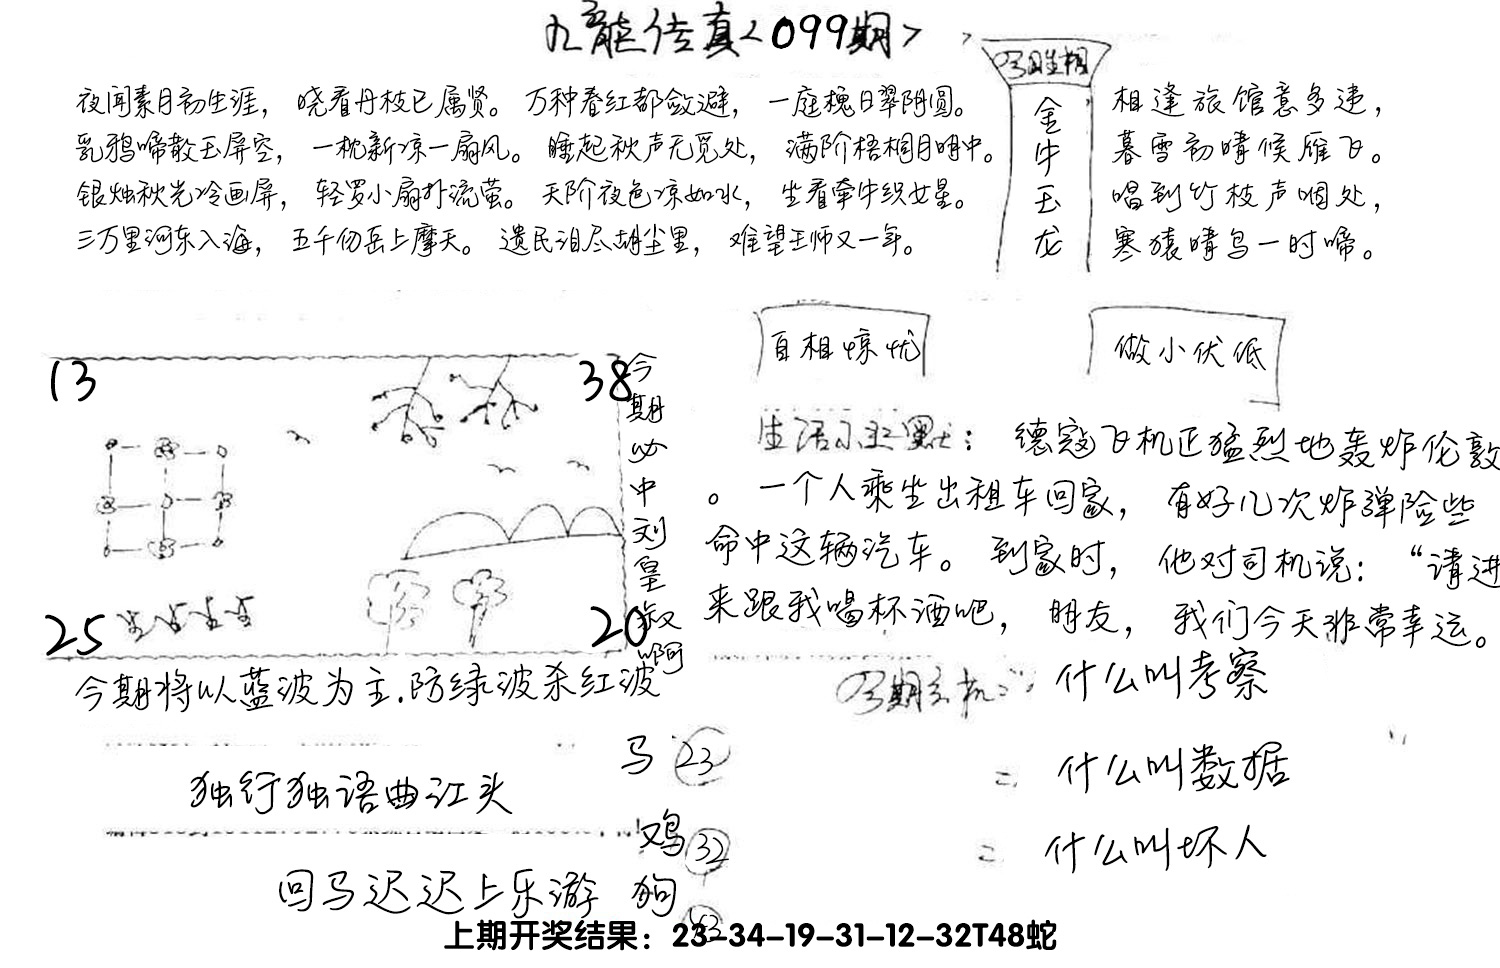 九龙传真<099期>
夜闻素月初生涯，晓看丹枝已属贤。万种春红都敛避，一庭槐日翠阴圆。
乳鸦啼散玉屏空，一枕新凉一扇风。睡起秋声无觅处，满阶梧桐月明中。
银烛秋光冷画屏，轻罗小扇扑流萤。天阶夜色凉如水，坐看牵牛织女星。
三万里河东入海，五千仞岳上摩天。遗民泪尽胡尘里，难望王师又一年。
今日生相
金牛玉龙
相逢旅馆意多违，
暮雪初晴候雁飞。
唱到竹枝声咽处，
寒猿晴鸟一时啼。
自相惊忧
做小伏低
13
38
25
20
今期必中刘皇叔啊
生活小幽默：德寇飞机正猛烈地轰炸伦敦
。一个人乘坐出租车回家，有好几次炸弹险些
命中这辆汽车。到家时，他对司机说：“请进
来跟我喝杯酒吧，朋友，我们今天非常幸运。
今期将以蓝波为主.防绿波杀红波
今期玄机:什么叫考察
=什么叫数据
=什么叫坏人
独行独语曲江头
回马迟迟上乐游
马 23
鸡 32
狗
上期开奖结果：23-34-19-31-12-32T48蛇